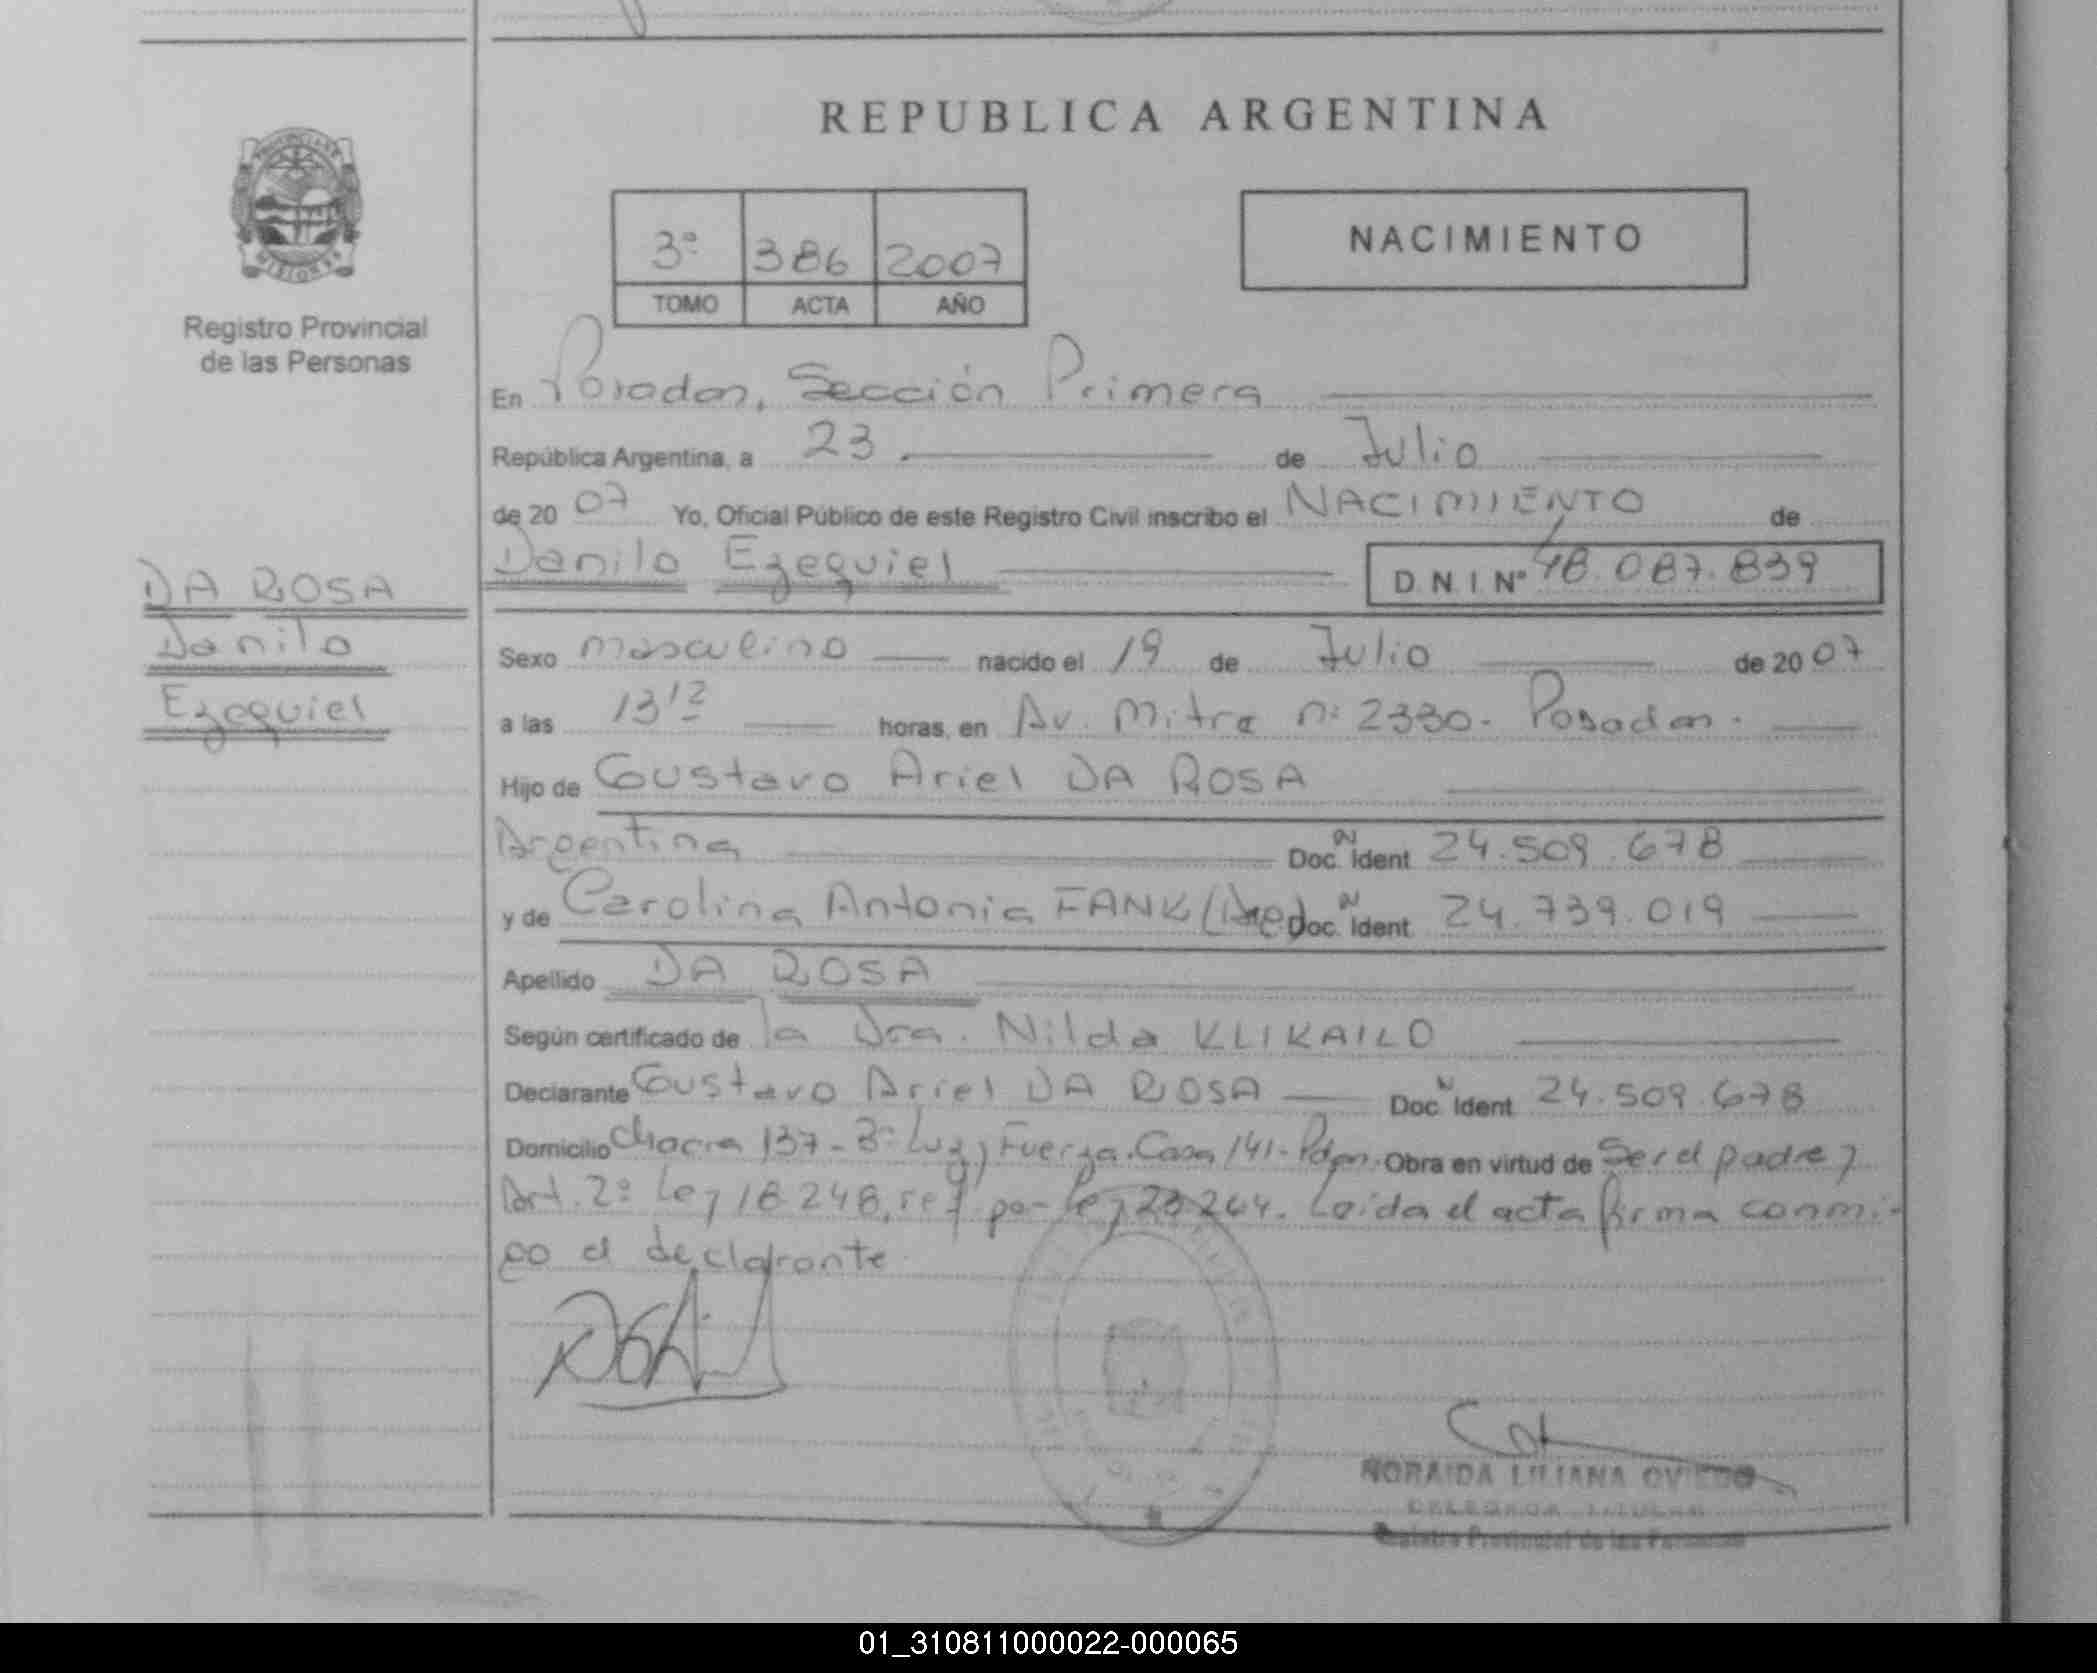 REPUBLICA ARGENTINA
3º 386 2007
TOMO ACTA AÑO
NACIMIENTO
MISIONES
Registro Provincial
de las Personas
DA ROSA
Danilo
Ezequiel
En Posadas, Sección Primera
República Argentina, a 23 de Julio
de 20 07 Yo, Oficial Público de este Registro Civil inscribo el NACIMIENTO de
Danilo Ezequiel D.N.I. Nº 48.087.839
Sexo masculino nacido el 19 de Julio de 20 07
a las 13 12 horas, en Av. Mitre nº 2330. Posadas.
Hijo de Gustavo Ariel DA ROSA
Argentina Doc. Ident N 24.509.678
y de Carolina Antonia FANK Doc. Ident N 24.739.019
Apellido DA ROSA
Según certificado de la Dra. Nilda KLIKAILO
Declarante Gustavo Ariel DA ROSA Doc. Ident N 24.509.678
Domicilio Chacra 137 - Bº Luz y Fuerza. Casa 141. Pdas. Obra en virtud de Ser el padre y
Art. 2º Ley 18.248, ref. por Ley 23.264. Leída el acta firma conmi-
go el declarante.
NORAIDA LILIANA OVIEDO
DELEGADA TITULAR
Registro Provincial de las Personas
01_310811000022-000065